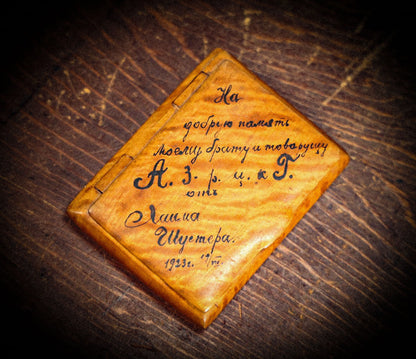 На
добрую память
моему брату и товарищу
А. З. р. ц. к Г.
отъ
Хаима
Шустера.
1923 г. 19/VI.